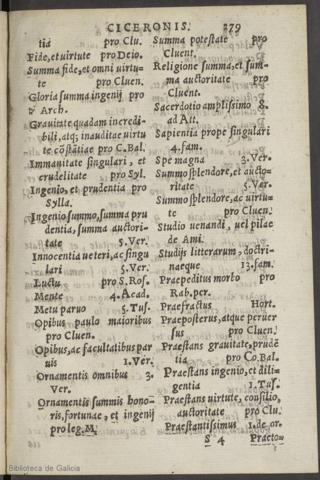 CICERONIS. 279
tia pro Clu.
Fide, et uirtute pro Deio.
Summa fide, et omni uirtu-
te pro Cluen.
Gloria summa ingenij pro
Arch.
Grauitate quadam incredi-
bili, atq; inaudita uirtu
te cõstãtiae pro C. Bal.
Immanitate singulari, et
crudelitate pro Syl.
Ingenio, et prudentia pro
Sylla.
Ingenio summo, summa pru
dentia, summa auctori-
tate 5. Ver.
Innocentia ueteri, ac singu
lari 5. Ver.
Luctu pro S. Ros.
Mente 4. Acad.
Metu paruo 5. Tus.
Opibus paulo maioribus
pro Cluen.
Opibus, ac facultatibus par
uis 1. Ver.
Ornamentis omnibus 3.
Ver.
Ornamentis summis hono-
ris, fortunae, et ingenij
pro leg. M.
Summa potestate pro
Cluent.
Religione summa, et sum-
ma auctoritate pro
Cluent.
Sacerdotio amplissimo 8.
ad Att.
Sapientia prope singulari
4. fam.
Spe magna 3. Ver.
Summo splendore, et aucto-
ritate 5. Ver.
Summo splendore, ac uirtu-
te pro Cluen.
Studio uenandi, uel pilae
de Ami.
Studijs litterarum, doctri-
naeque 13. fam.
Praepeditus morbo pro
Rab. per.
Praefractus Hort.
Praeposterus, atque peruer
sus pro Cluen.
Praestans grauitate, prudẽ
tia pro Co. Bal.
Praestans ingenio, et dili-
gentia 1. Tus.
Praestans uirtute, consilio,
auctoritate pro Clu.
Praestantissimus 1. de or.
S 4 Praeto=
Biblioteca de Galicia